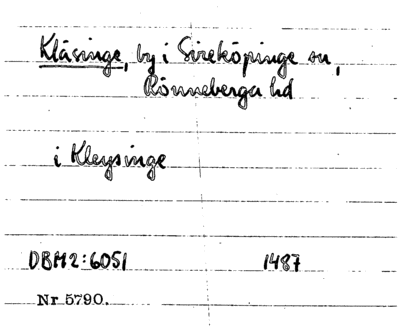 Kläsinge, by i Sireköpinge sn,
Rönneberga hd
i Kleysinge
DBM2:6051 1487
Nr 5790.